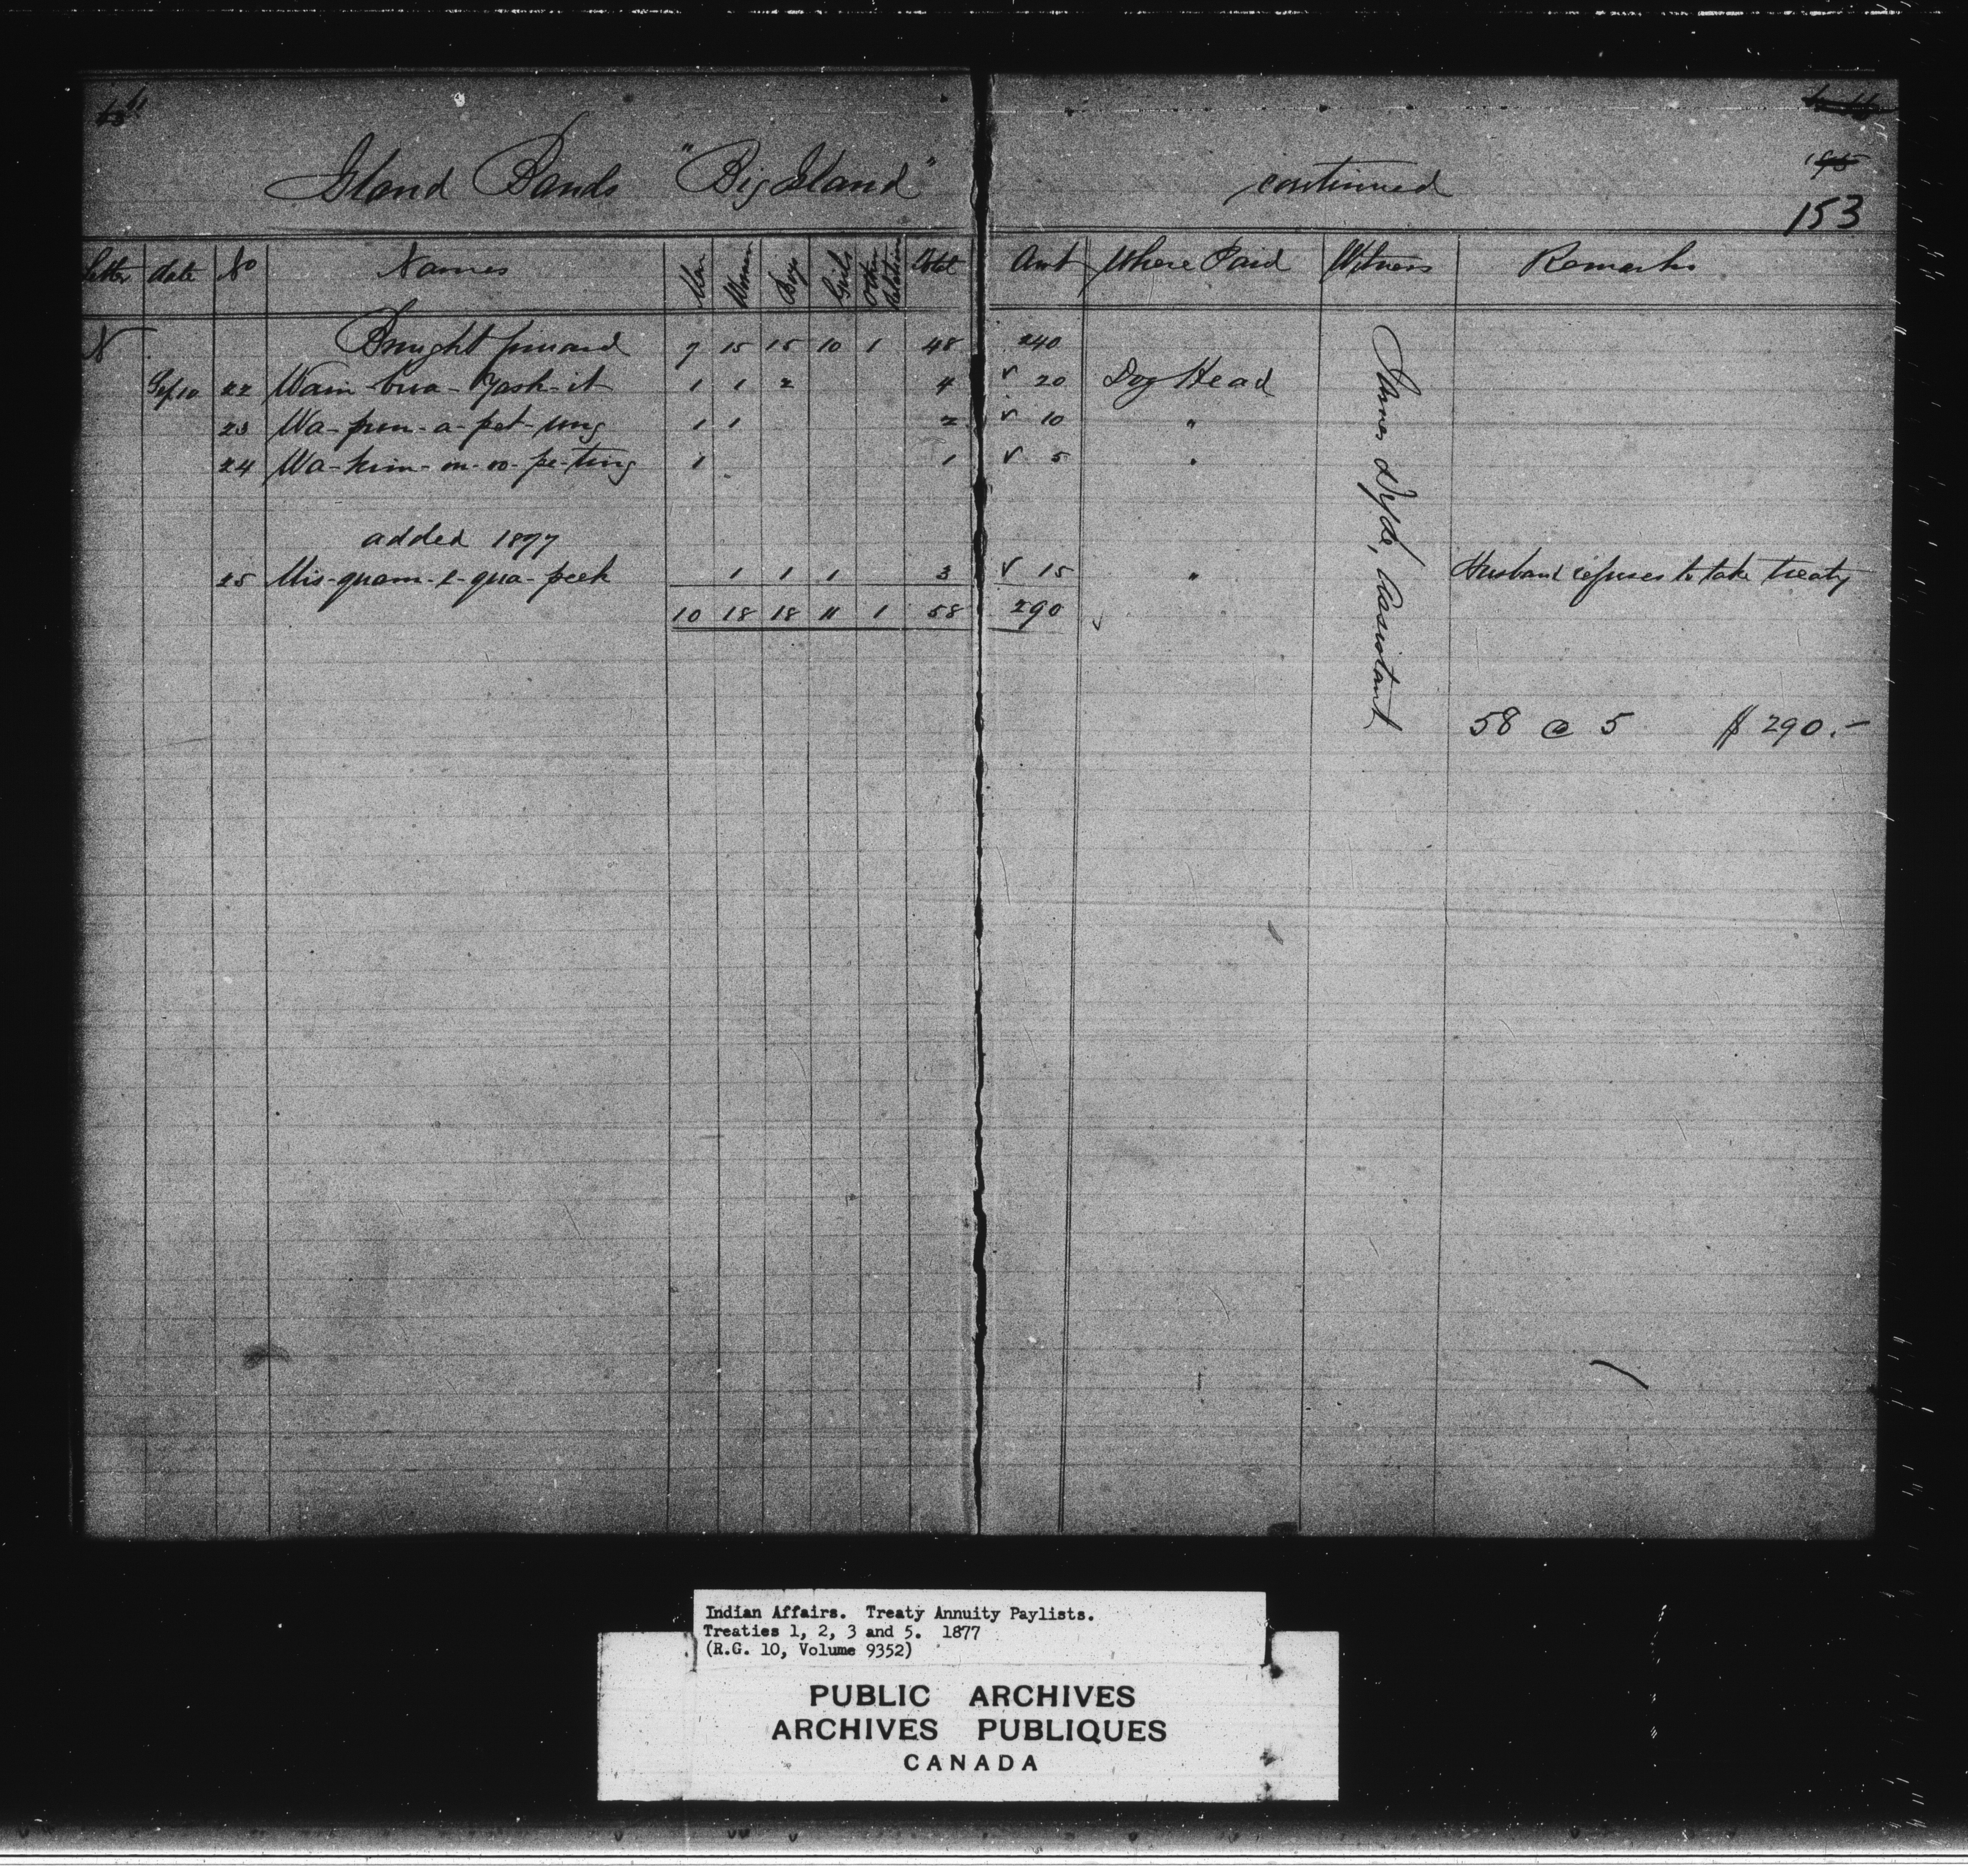 Island Bands "Big Island" continued
153
Letter date No Names Men Women Boys Girls Other Relations Total Amt Where Paid Witness Remarks
N Brought forward 7 15 15 10 1 48 240
Sep 10 22 Wain-bwa-Yash-it 1 1 2 4 √ 20 Dog Head
23 Wa-pun-a-pet-ung 1 1 2 √ 10 "
24 Wa-kim-on-oo-pe-ting 1 1 √ 5 "
added 1877
25 Mis-quam-e-qua-peek 1 1 1 3 √ 15 " Husband refuses to take treaty
10 18 18 11 1 58 290
James Assistant
58 @ 5 $ 290.-
Indian Affairs. Treaty Annuity Paylists.
Treaties 1, 2, 3 and 5. 1877
(R.G. 10, Volume 9352)
PUBLIC ARCHIVES
ARCHIVES PUBLIQUES
CANADA